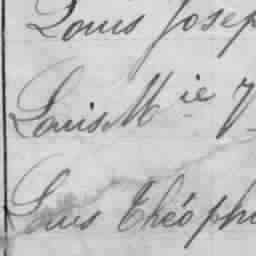 Louis Josep
Louis M ie J
Louis Théoph